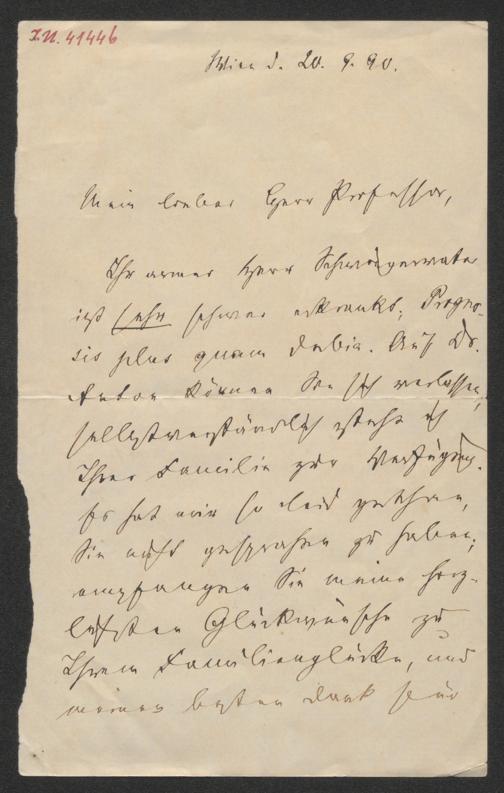 I.N. 41446
Wien d. 20. 9. 90.
Mein lieber Herr Professor,
Ihr armer Herr Schwiegervater
ist sehr schwer erkrankt; Progno-
sis plus quam dubia. Auf Dr.
Anton können Sie sich verlassen;
selbstverständlich steht er
Ihrer Familie zur Verfügung.
Es hat mir so leid gethan,
Sie nicht gesprochen zu haben;
empfangen Sie meine herz-
lichsten Glückwünsche zu
Ihrem Familienglücke, und
meinen besten Dank für